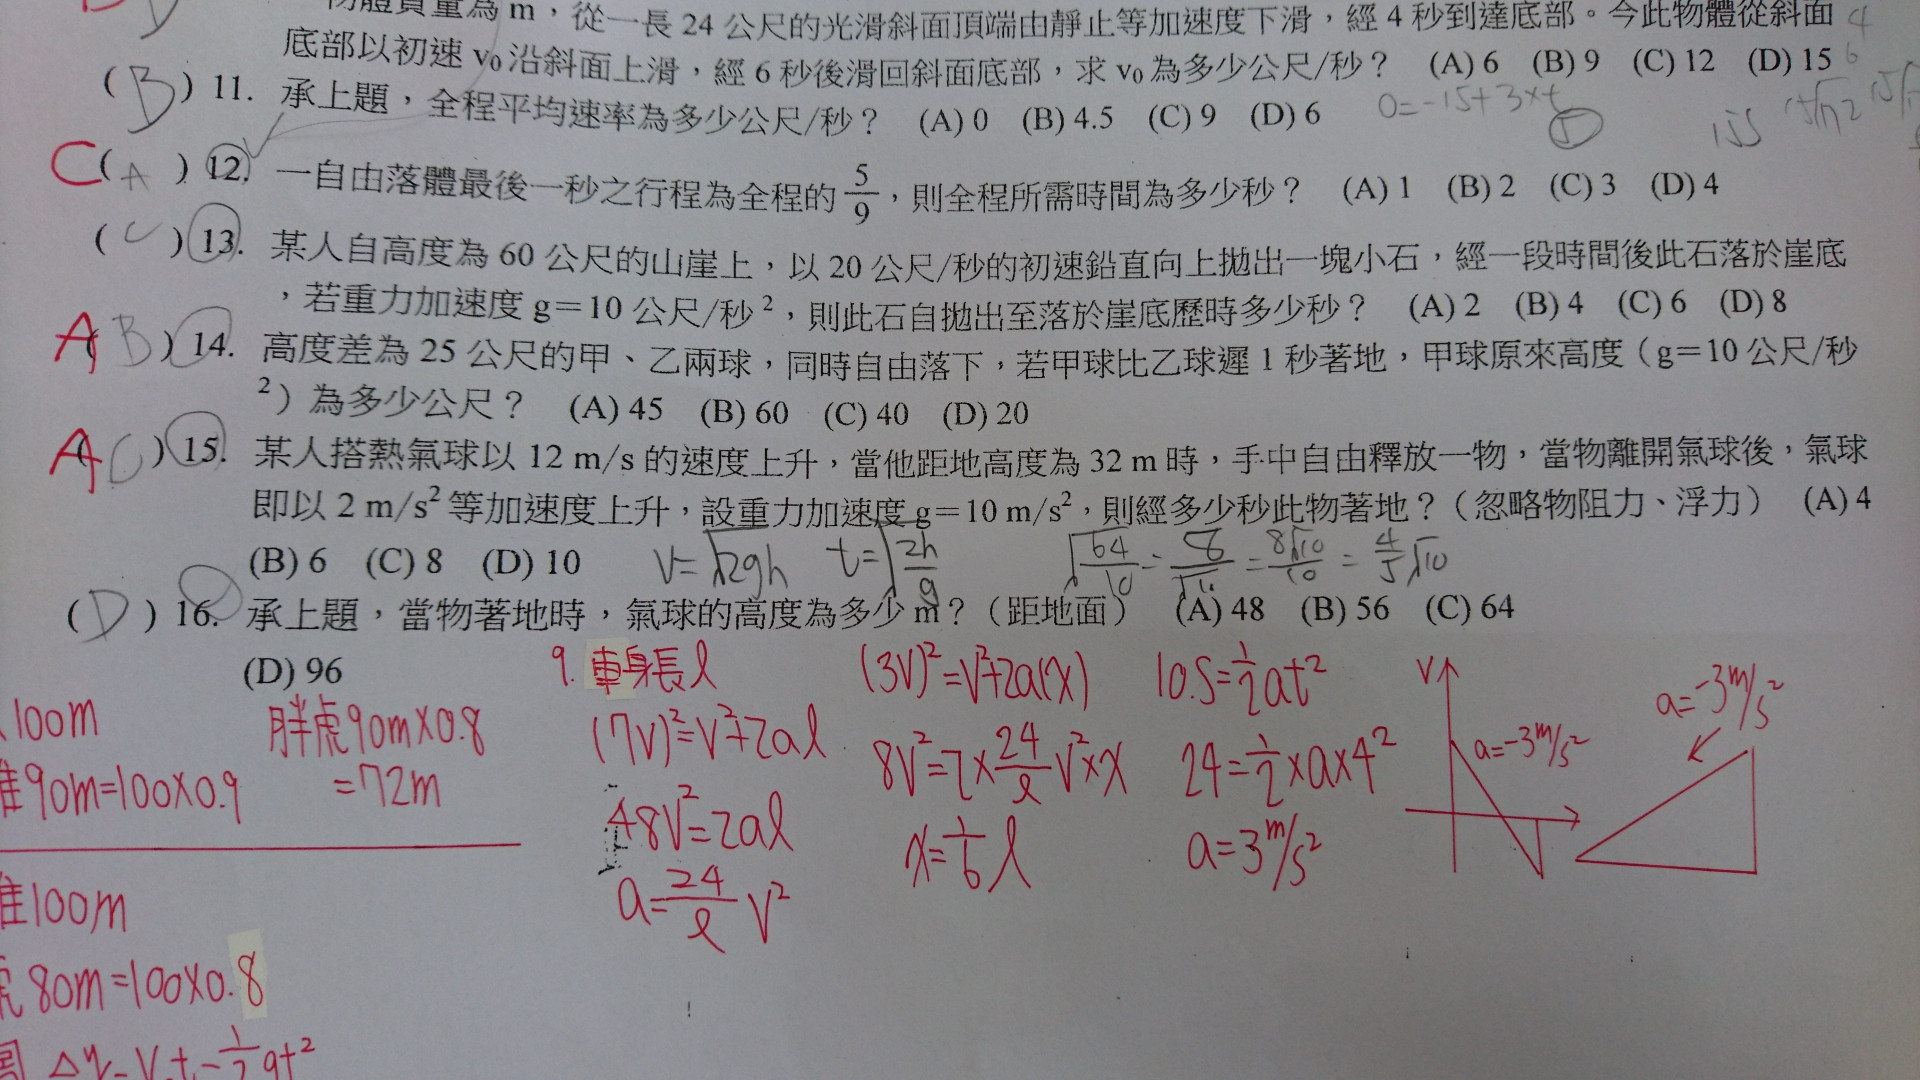 物體質量為 m,從一長 24 公尺的光滑斜面頂端由靜止等加速度下滑,經 4 秒到達底部。今此物體從斜面
底部以初速 v₀ 沿斜面上滑,經 6 秒後滑回斜面底部,求 v₀ 為多少公尺/秒? (A) 6 (B) 9 (C) 12 (D) 15
(B) 11. 承上題,全程平均速率為多少公尺/秒? (A) 0 (B) 4.5 (C) 9 (D) 6
0=-15+3×t
5
C(A) 12. 一自由落體最後一秒之行程為全程的 5/9,則全程所需時間為多少秒? (A) 1 (B) 2 (C) 3 (D) 4
(C) 13. 某人自高度為 60 公尺的山崖上,以 20 公尺/秒的初速鉛直向上拋出一塊小石,經一段時間後此石落於崖底
,若重力加速度 g=10 公尺/秒²,則此石自拋出至落於崖底歷時多少秒? (A) 2 (B) 4 (C) 6 (D) 8
A(B) 14. 高度差為 25 公尺的甲、乙兩球,同時自由落下,若甲球比乙球遲 1 秒著地,甲球原來高度(g=10 公尺/秒
²)為多少公尺? (A) 45 (B) 60 (C) 40 (D) 20
A(C) 15. 某人搭熱氣球以 12 m/s 的速度上升,當他距地高度為 32 m 時,手中自由釋放一物,當物離開氣球後,氣球
即以 2 m/s² 等加速度上升,設重力加速度 g=10 m/s²,則經多少秒此物著地?(忽略物阻力、浮力) (A) 4
(B) 6 (C) 8 (D) 10 V=√2gh t=√(2h/g) √(64/10)=8/√10=8√10/10=4/5√10
(D) 16. 承上題,當物著地時,氣球的高度為多少 m?(距地面) (A) 48 (B) 56 (C) 64
(D) 96
100m
準90m=100×0.9
胖虎90m×0.8
=72m
準100m
虎80m=100×0.8
Δy=V₀t-½gt²
9. 車身長l
(7V)²=V²+2al
48V²=2al
a=24/l V²
(3V)²=V²+2a(x)
8V²=2×24/l V²×x
x=1/6 l
10. S=½at²
24=½×a×4²
a=3m/s²
V
a=-3m/s²
a=-3m/s²